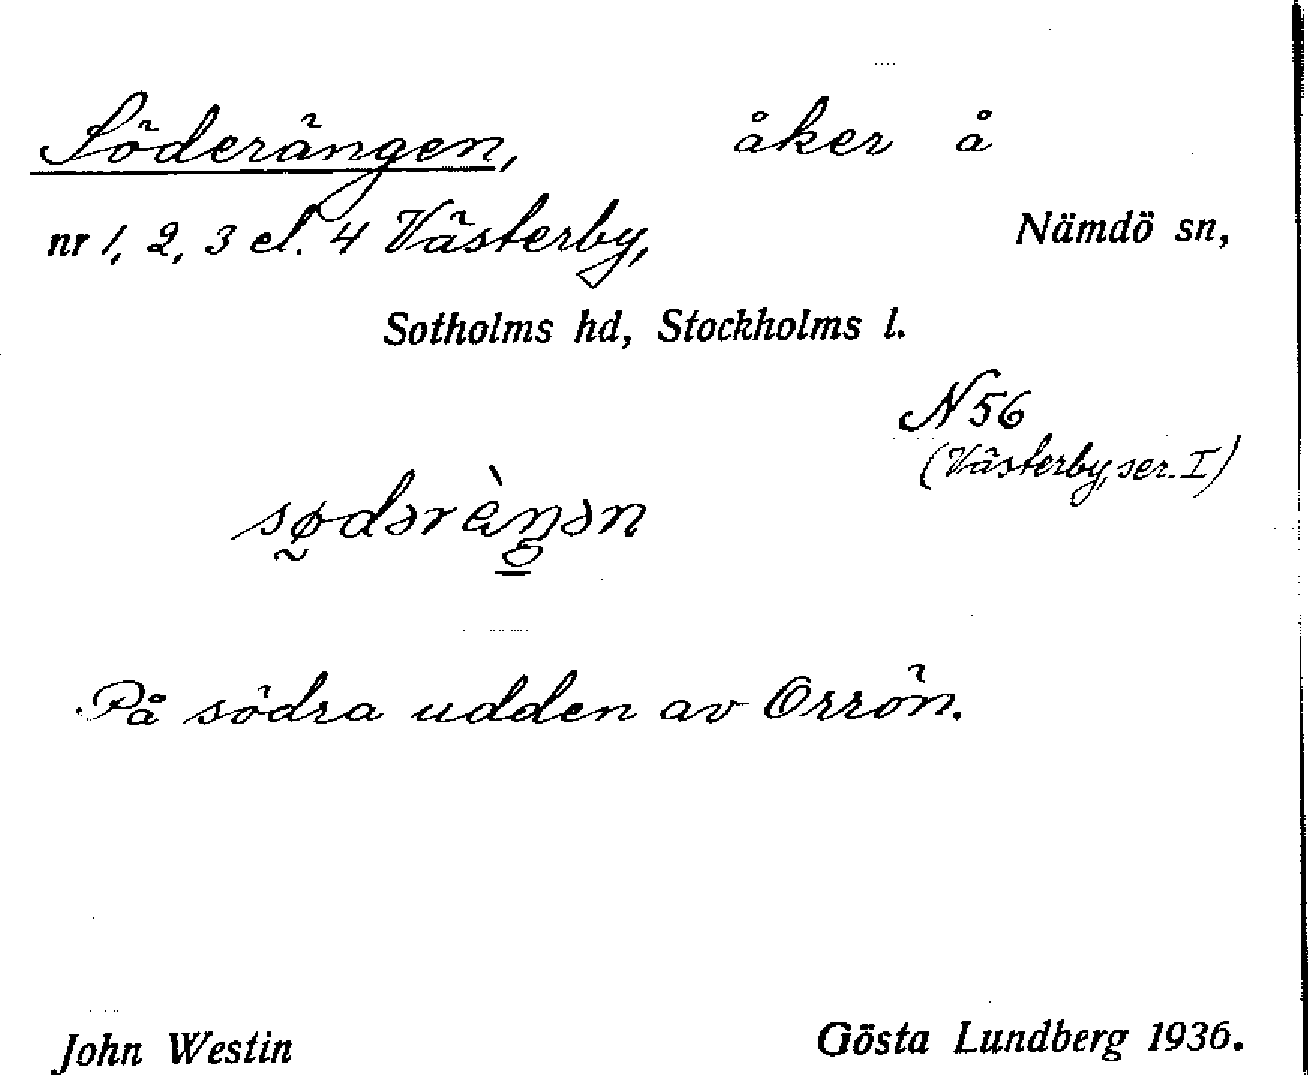 Söderängen, åker å
nr 1, 2, 3 el. 4 Västerby, Nämdö sn,
Sotholms hd, Stockholms l.
N 56
(Västerby, ser. I)
sø̰dərὲŋən
På södra udden av Orrön.
John Westin Gösta Lundberg 1936.